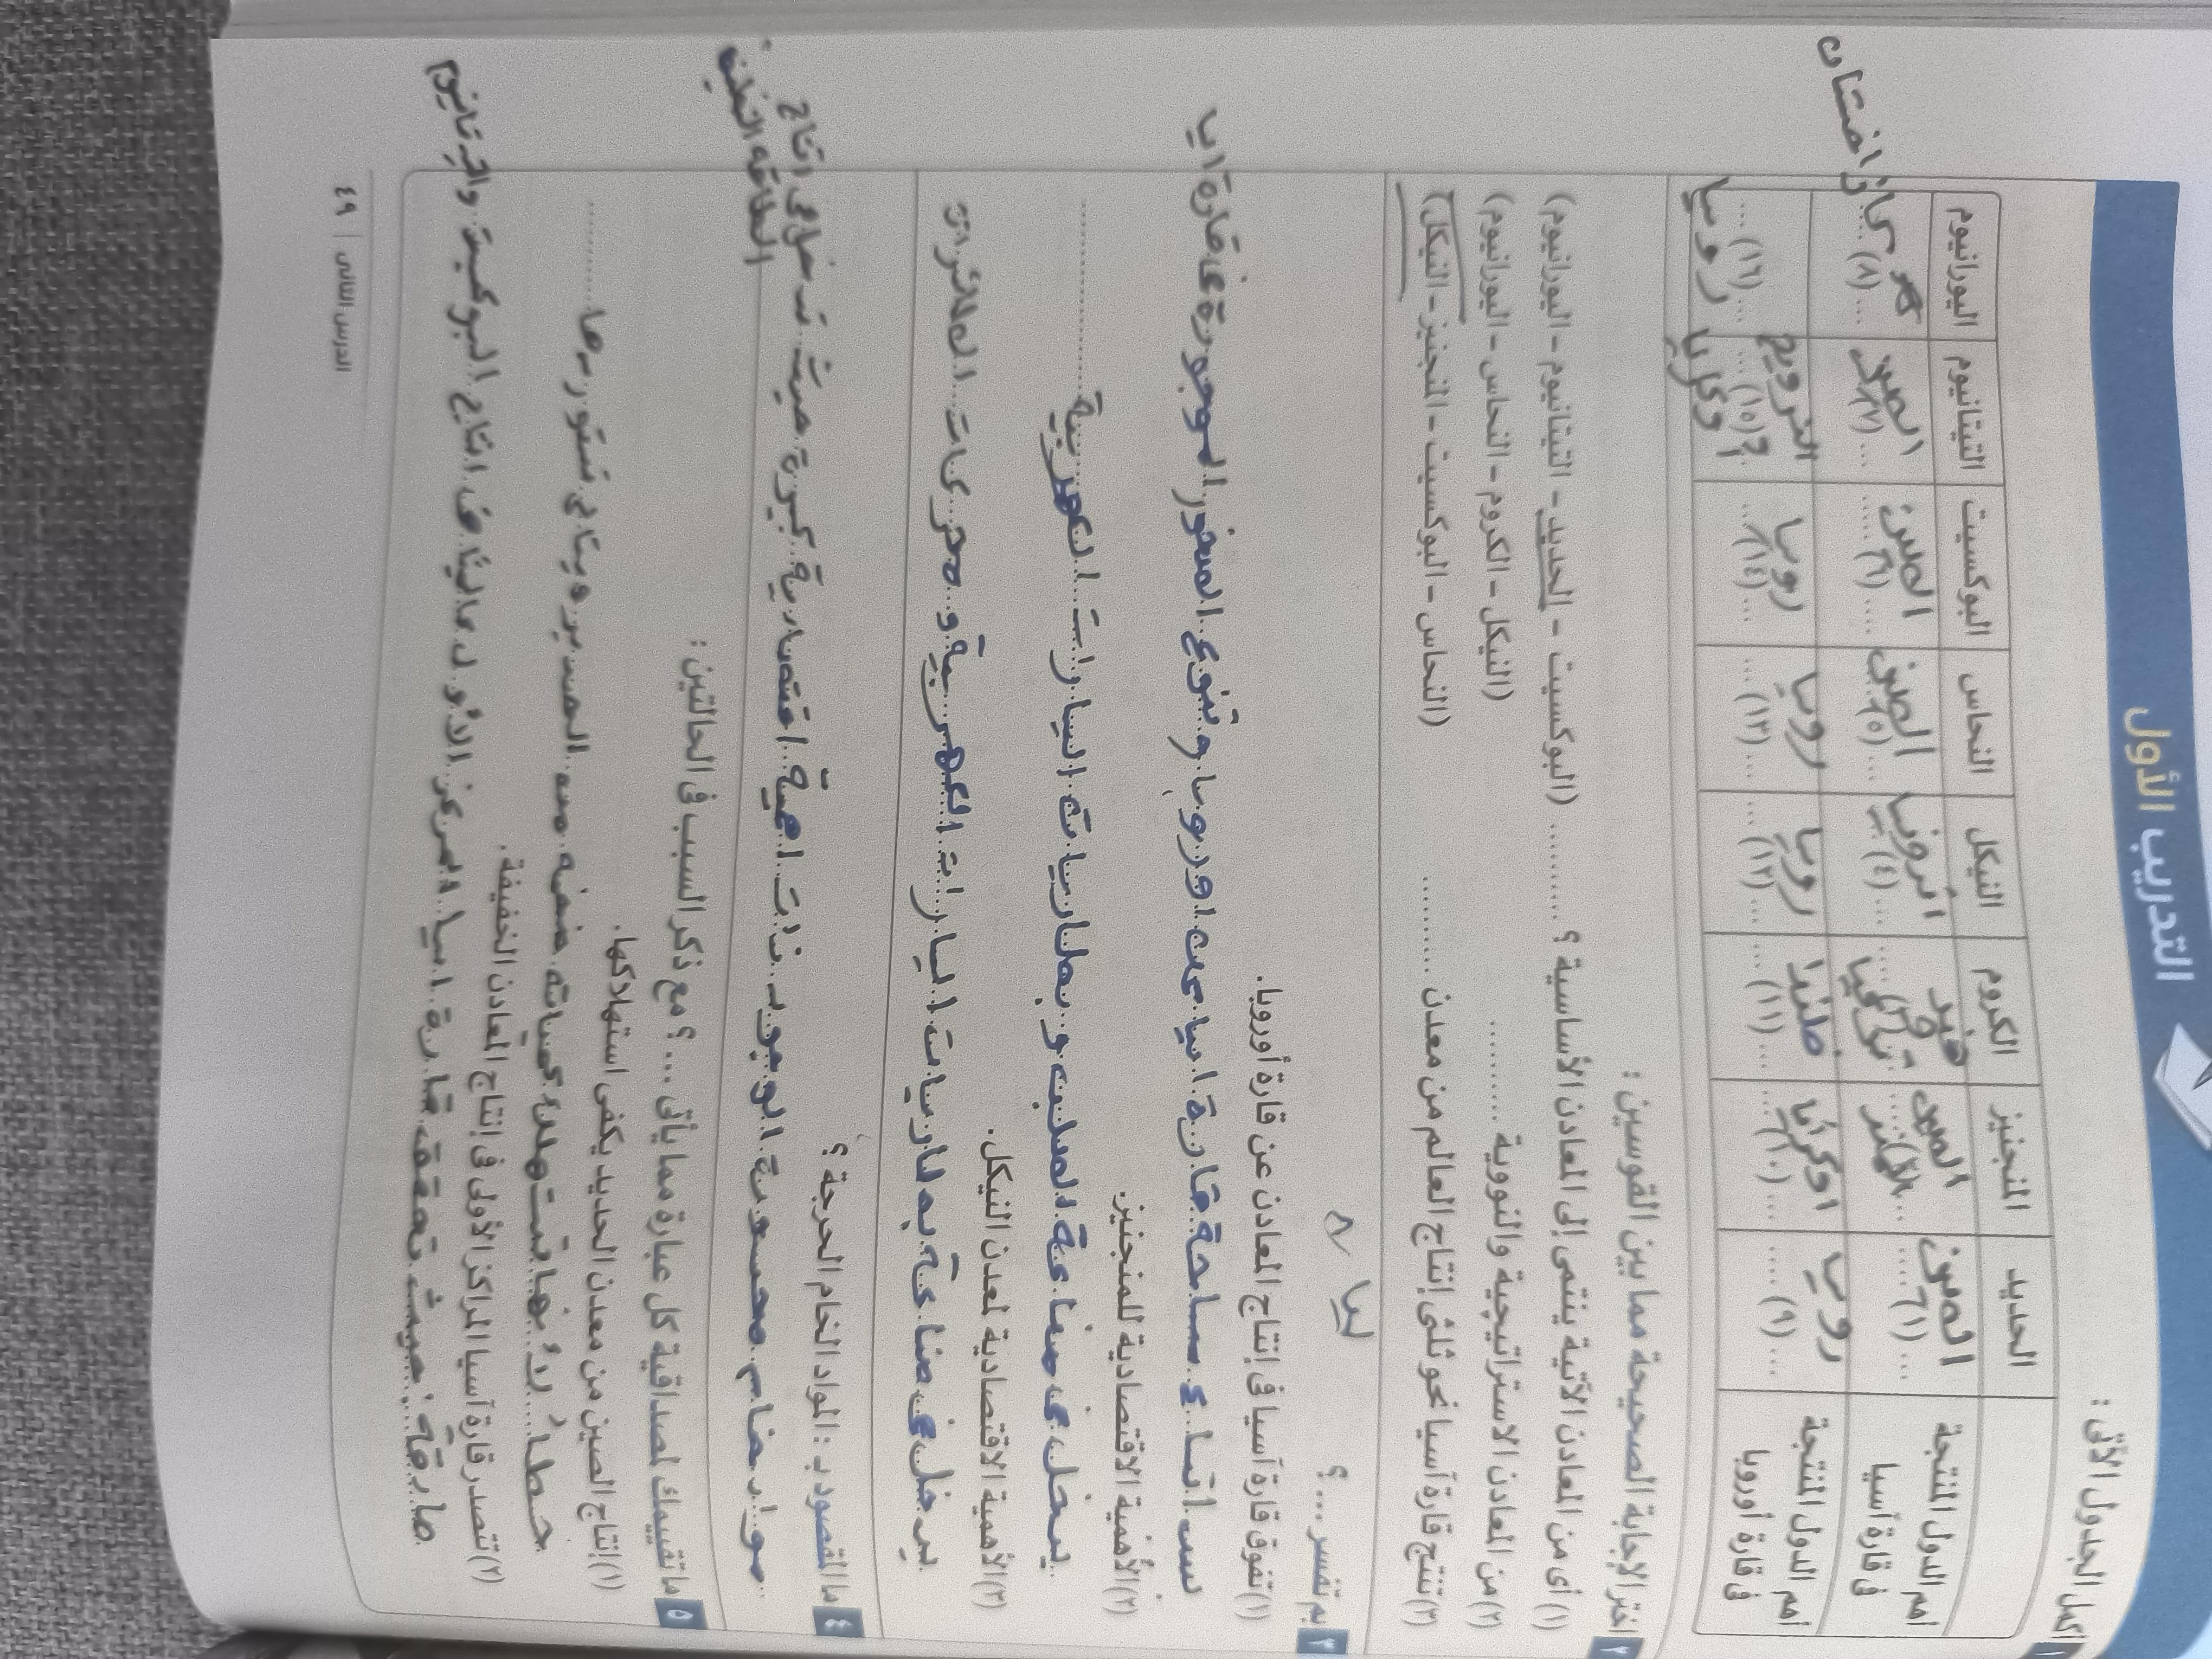 التدريب الأول
١ أكمل الجدول الآتى :
الحديد المنجنيز الكروم النيكل النحاس البوكسيت التيتانيوم اليورانيوم
أهم الدول المنتجة فى قارة آسيا
الصين (١) الصين (٢) الهند هند (٣) و تركيا (٤) الصين (٥) الصين (٦) الصين (٧) (٨) كازاخستان
أهم الدول المنتجة فى قارة أوروبا
روسيا (٩) اوكرانيا (١٠) (١١) روسيا (١٢) روسيا (١٣) روسيا (١٤) النرويج (١٥) و أوكرانيا (١٦) روسيا
٢ اختر الإجابة الصحيحة مما بين القوسين :
(١) أى من المعادن الآتية ينتمى إلى المعادن الأساسية ؟ .......... (البوكسيت - الحديد - التيتانيوم - اليورانيوم)
(٢) من المعادن الاستراتيجية والنووية .......... (النيكل - الكروم - النحاس - اليورانيوم)
(٣) تنتج قارة آسيا نحو ثلثى إنتاج العالم من معدن .......... (النحاس - البوكسيت - المنجنيز - النيكل)
٣ بم تفسر ... ؟
(١) تفوق قارة آسيا فى إنتاج المعادن عن قارة أوروبا.
بسبب اتساع مساحة قارة اسيا عن اوروبا و تنوع الصخور الموجودة فى قارة اسيا
(٢) الأهمية الاقتصادية للمنجنيز.
يدخل فى صناعة الصلب و بطاريات السيارات الكهربية
(٣) الأهمية الاقتصادية لمعدن النيكل.
يدخل فى صناعة بطاريات السيارات الكهربية و محركات الطائرات
٤ ما المقصود بـ : المواد الخام الحرجة ؟
مواد خام محدودة الوجود ذات اهمية اقتصادية كبيرة حيث تدخل فى انتاج الطاقة النظيفة
٥ ما تقييمك لصداقية كل عبارة مما يأتى ... ؟ مع ذكر السبب فى الحالتين :
(١) إنتاج الصين من معدن الحديد يكفى استهلاكها.
خطأ لأنها تستهلك كميات ضخمة من الحديد وبتالى تستوردها
(٢) تتصدر قارة آسيا المراكز الأولى فى إنتاج المعادن الخفيفة.
صادقة حيث تحقق قارة اسيا المركز الأول عالميًا فى انتاج البوكسيت والتيتانيوم
٤٩ | الدرس الثانى